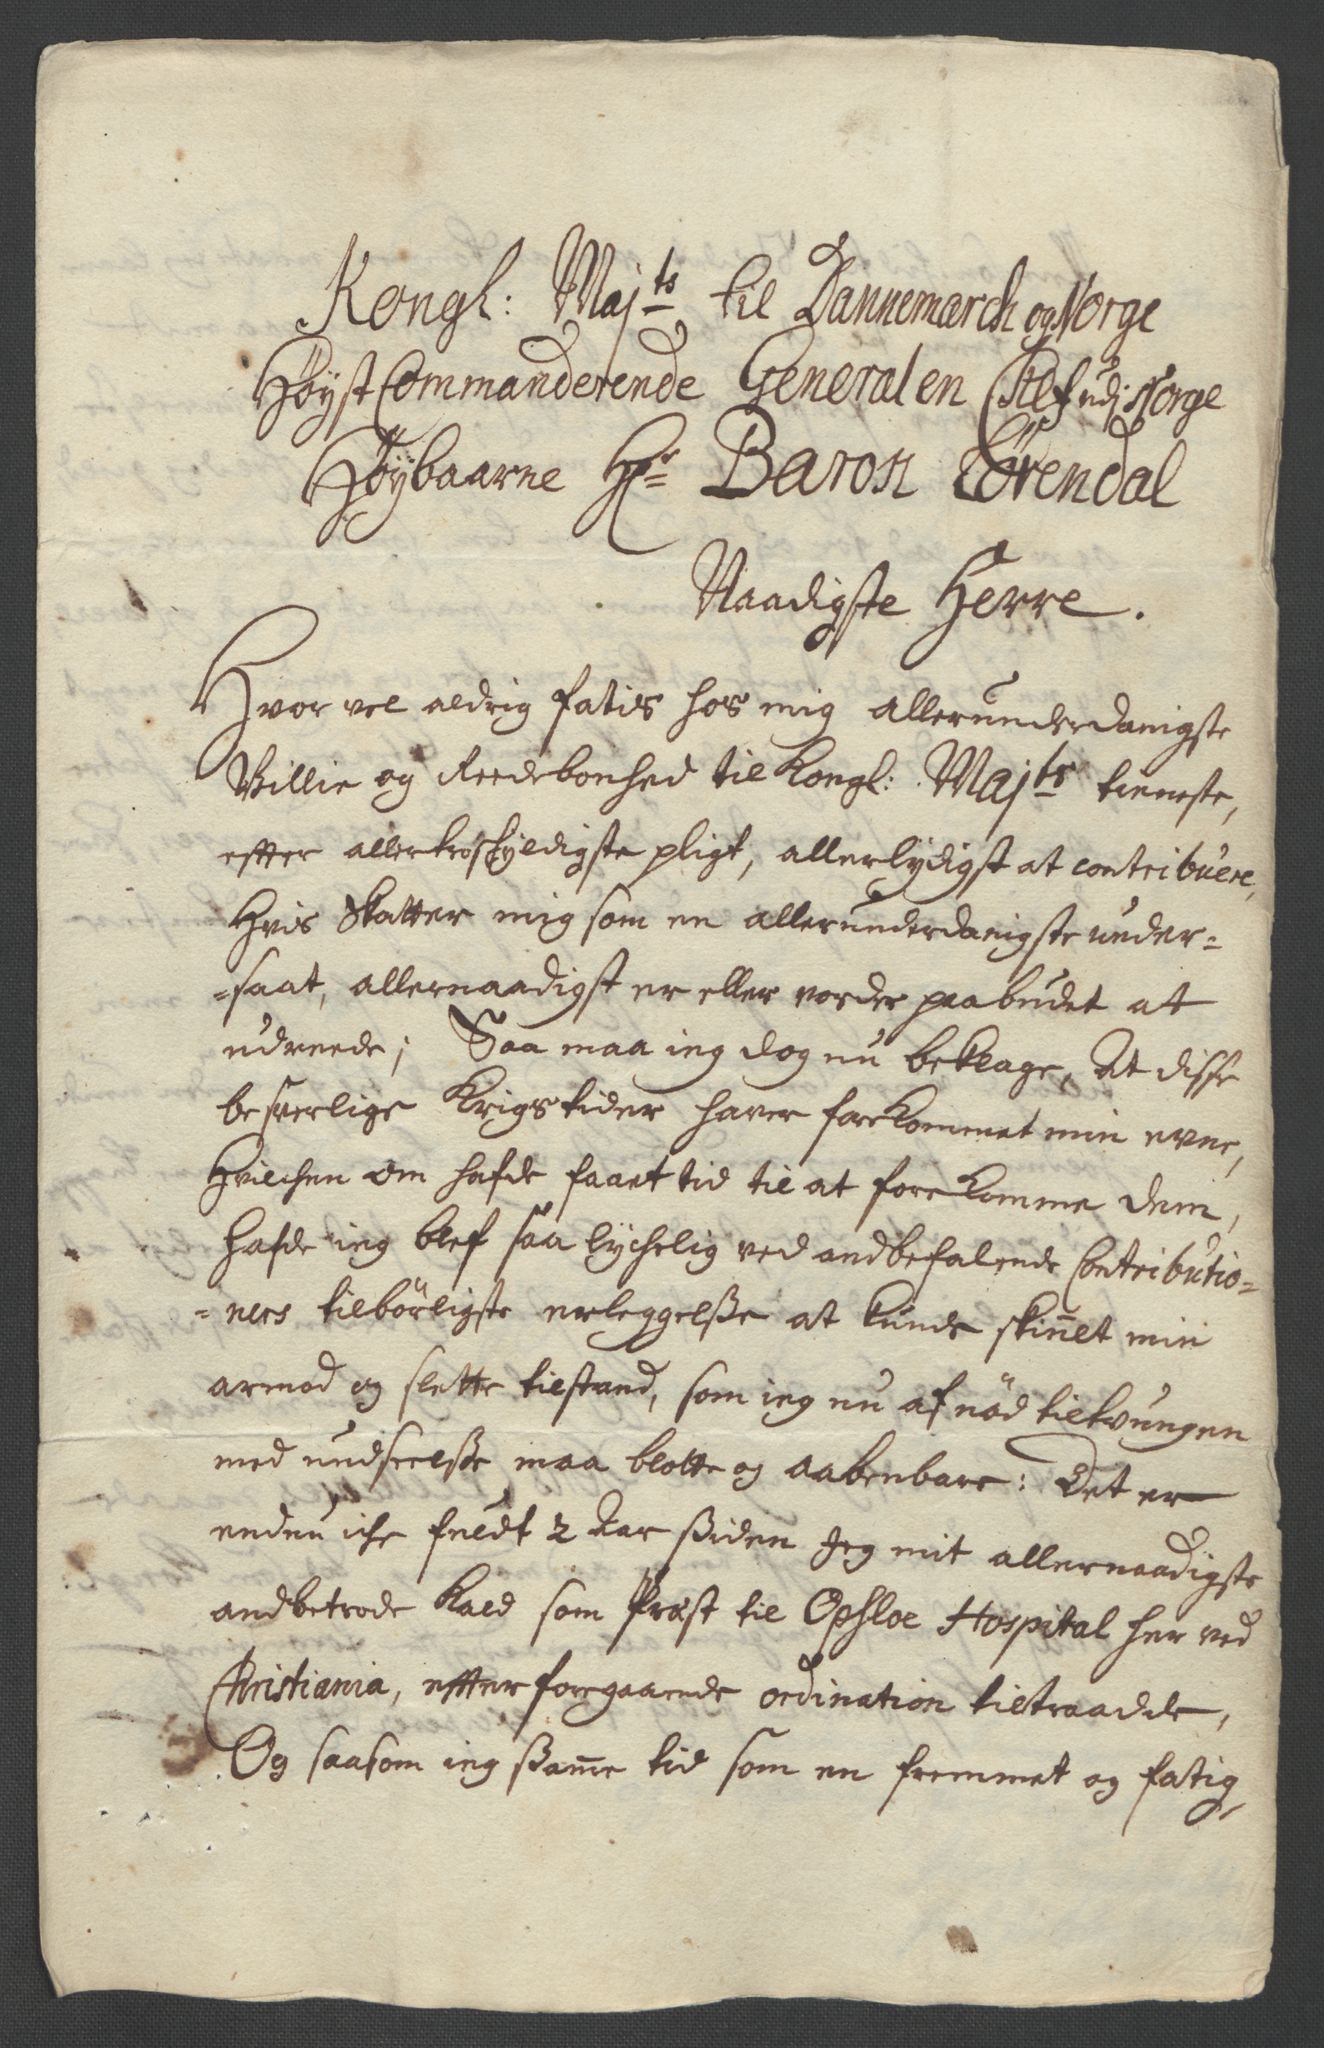 Kongl: Maj<sup>ts</sup> til Dannemarch og Norge
Høyst Commanderende General en Chef udj Norge
Høybaarne H<sup>r</sup> Baron Lövendal
Naadigste Herre.
Hvor vel aldrig fatis hos mig allerunderdanigste
Villie og Reedebonhed til Kongl: Maj<sup>ts</sup> tieneste,
effter allertroskyldigste pligt, allerlydigst at contribuere,
Hvis Skatter mig som en allerunderdanigste under-
-saat, allernaadigst er eller vorder paabudet at
udreede; Saa maa ieg dog nu beklage, At disse
besverlige Krigstider haver forekommet min evne,
Hvilchen om hafde faaet tid til at forekomme dem,
hafde ieg blef saa lychelig ved andbefalende Contributio-
-ners tilbörligste erleggelsse at kunde skiult min
armod og slette tilstand, som ieg nu af nöd tiltvungen
med undseelsse maa blotte og aabenbare: Det er
endnu iche fuldt 2 Aar ssiden Jeg mit allernaadigste
andbetrode Kald som Præst til Opsloe Hospital her ved
Christiania, effter foregaaende ordination tiltraadde,
Og saasom ieg ssam̄e tid som en fremmet og fatig,